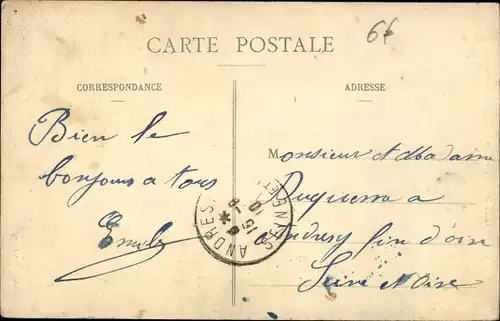 CARTE POSTALE
64
CORRESPONDANCE
ADRESSE
Bien le
bonjour a tous
Emile
Monsieur et Madame
Duquenne a
Andresy fin d'oise
Seine et Oise
ANDRESY
S. ET